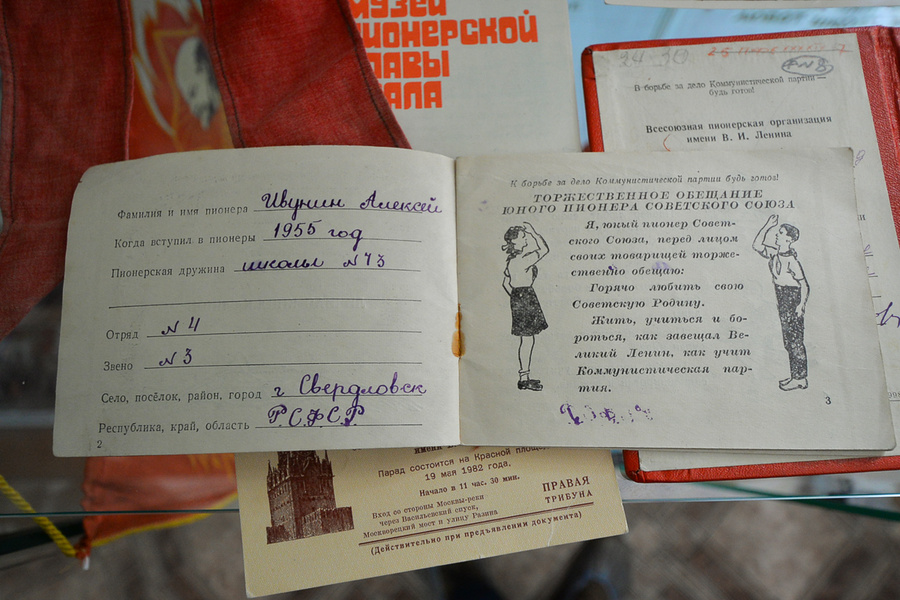 МУЗЕЙ
ПИОНЕРСКОЙ
СЛАВЫ
УРАЛА
В борьбе за дело Коммунистической партии —
будь готов!
Всесоюзная пионерская организация
имени В. И. Ленина
Фамилия и имя пионера Ивунин Алексей
Когда вступил в пионеры 1955 год
Пионерская дружина школы №73
Отряд №4
Звено №3
Село, посёлок, район, город г Свердловск
Республика, край, область РСФСР
2
К борьбе за дело Коммунистической партии будь готов!
ТОРЖЕСТВЕННОЕ ОБЕЩАНИЕ
ЮНОГО ПИОНЕРА СОВЕТСКОГО СОЮЗА
Я, юный пионер Совет-
ского Союза, перед лицом
своих товарищей торже-
ственно обещаю:
Горячо любить свою
Советскую Родину.
Жить, учиться и бо-
роться, как завещал Ве-
ликий Ленин, как учит
Коммунистическая пар-
тия.
3
имени
Парад состоится на Красной площа
19 мая 1982 года.
Начало в 11 час. 30 мин.
Вход со стороны Москвы-реки
через Васильевский спуск,
Москворецкий мост и улицу Разина
ПРАВАЯ
ТРИБУНА
(Действительно при предъявлении документа)